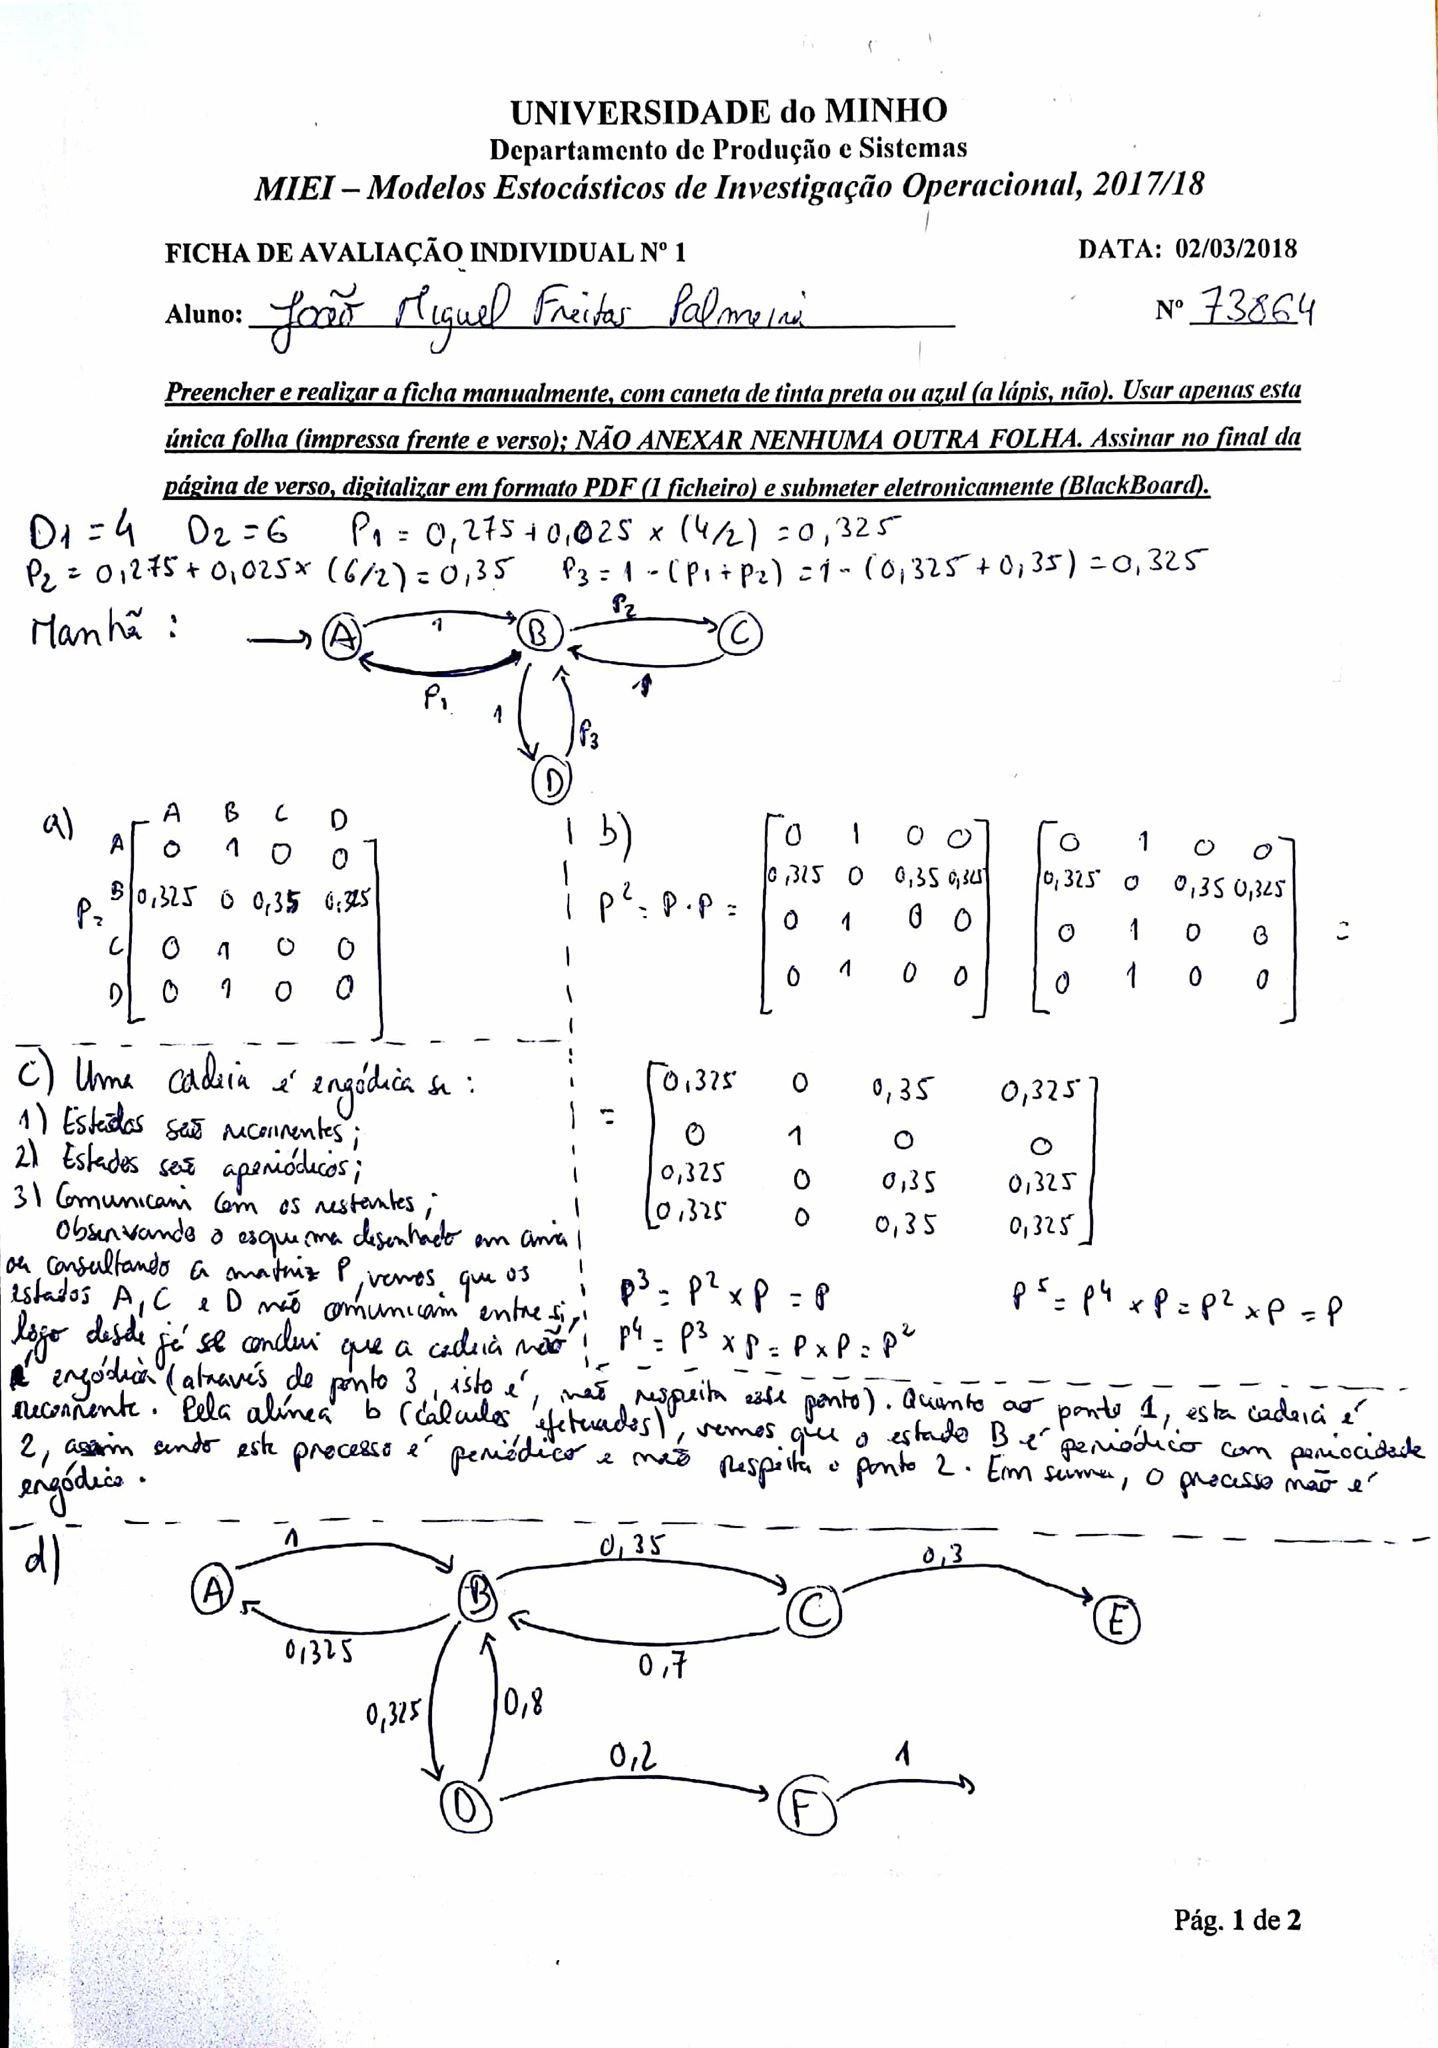 UNIVERSIDADE do MINHO
Departamento de Produção e Sistemas
MIEI – Modelos Estocásticos de Investigação Operacional, 2017/18
FICHA DE AVALIAÇÃO INDIVIDUAL Nº 1 DATA: 02/03/2018
Aluno: João Miguel Freitas Palmeira Nº 73864
Preencher e realizar a ficha manualmente, com caneta de tinta preta ou azul (a lápis, não). Usar apenas esta
única folha (impressa frente e verso); NÃO ANEXAR NENHUMA OUTRA FOLHA. Assinar no final da
página de verso, digitalizar em formato PDF (1 ficheiro) e submeter eletronicamente (BlackBoard).
D1 = 4 D2 = 6 P1 = 0,275 + 0,025 × (4/2) = 0,325
P2 = 0,275 + 0,025 × (6/2) = 0,35 P3 = 1 - (P1 + P2) = 1 - (0,325 + 0,35) = 0,325
Manhã :
A 1 B P2 C
P1 1
1 P3
D
a)
A B C D
A 0 1 0 0
P = B 0,325 0 0,35 0,325
C 0 1 0 0
D 0 1 0 0
b)
P² = P . P =
0 1 0 0
0,325 0 0,35 0,325
0 1 0 0
0 1 0 0
0 1 0 0
0,325 0 0,35 0,325
0 1 0 0
0 1 0 0
=
=
0,325 0 0,35 0,325
0 1 0 0
0,325 0 0,35 0,325
0,325 0 0,35 0,325
P³ = P² × P = P P⁵ = P⁴ × P = P² × P = P
P⁴ = P³ × P = P × P = P²
c) Uma cadeia é engódica se :
1) Estados são recorrentes ;
2) Estados são aperiódicos ;
3) Comunicam com os restantes ;
Observando o esquema desenhado em cima
ou consultando a matriz P, vemos que os
estados A, C e D não comunicam entre si,
logo desde já se conclui que a cadeia não
é engódica (através do ponto 3, isto é, não respeita esse ponto). Quanto ao ponto 1, esta cadeia é
recorrente. Pela alínea b (cálculos efetuados), vemos que o estado B é periódico com periocidade
2, assim sendo este processo é periódico e não respeita o ponto 2. Em suma, o processo não é
engódico.
d)
A 1 B 0,35 C 0,3 E
0,325 0,7
0,325 0,8
D 0,2 F 1
Pág. 1 de 2